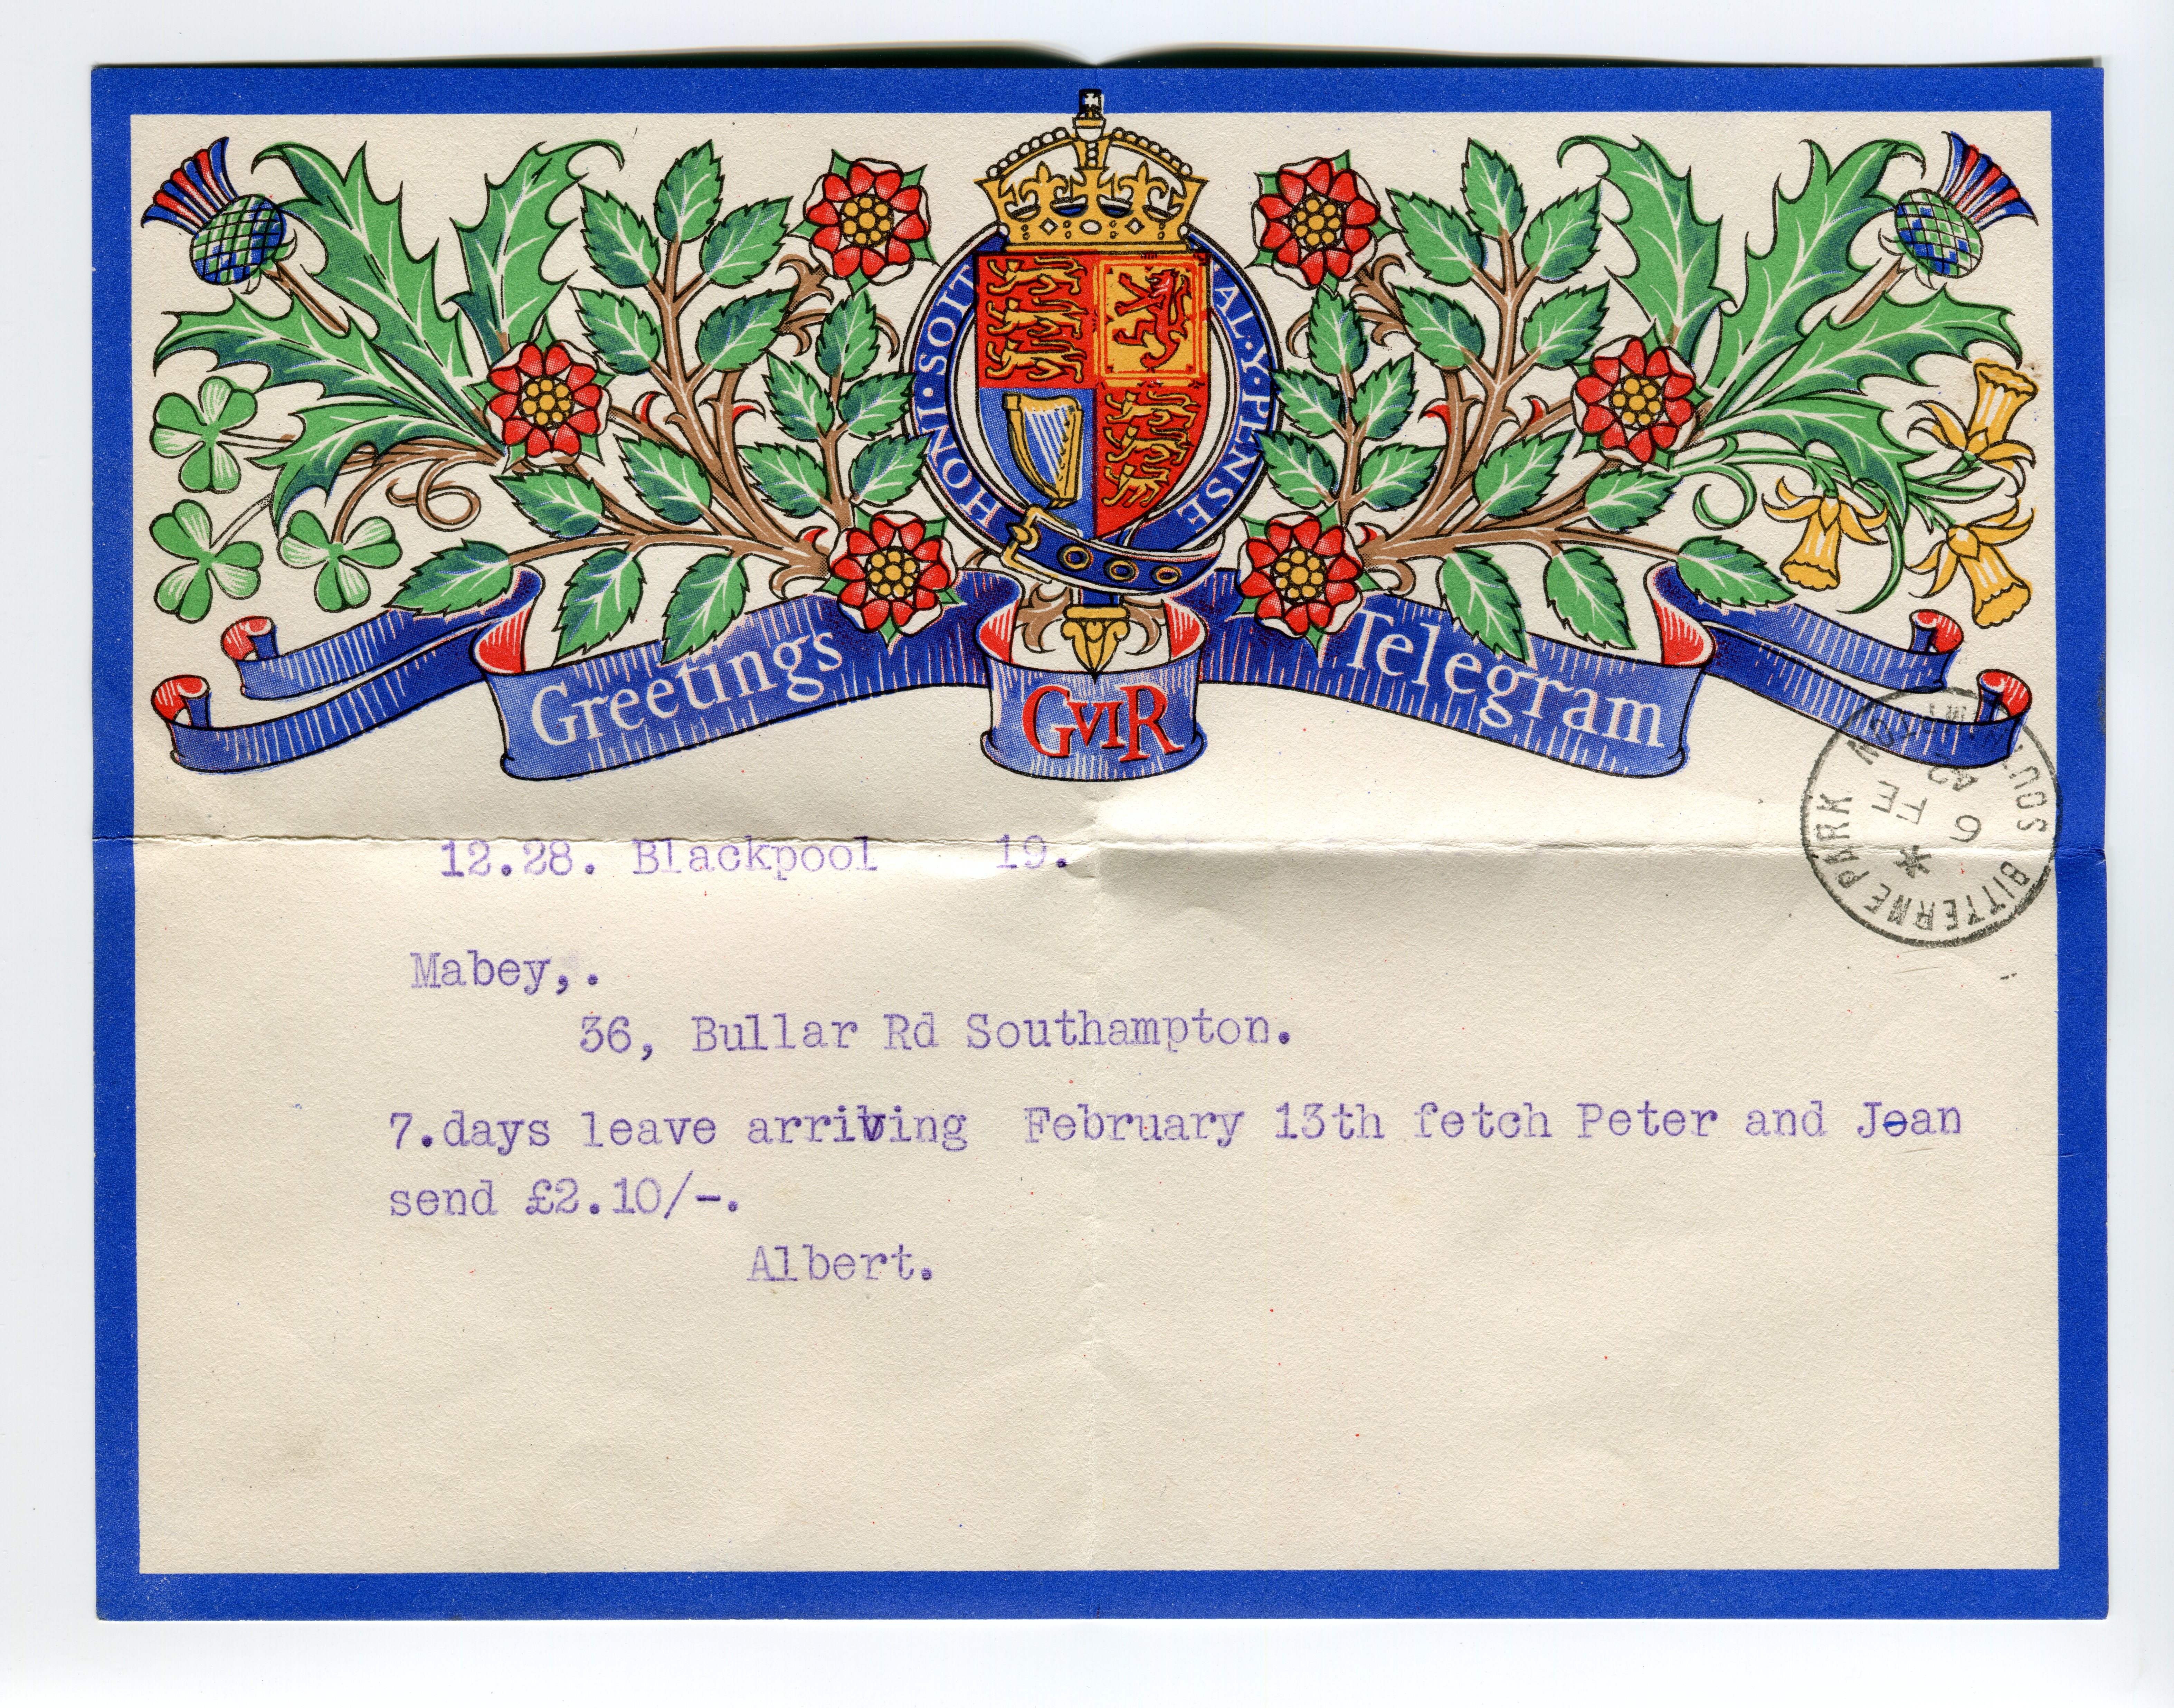 HONI·SOIT AL·Y·PENSE
Greetings GVIR Telegram
BITTERNE PARK
6 FE
42
12.28. Blackpool 19.
Mabey,.
36, Bullar Rd Southampton.
7.days leave arriving February 13th fetch Peter and Jean
send £2.10/-.
Albert.